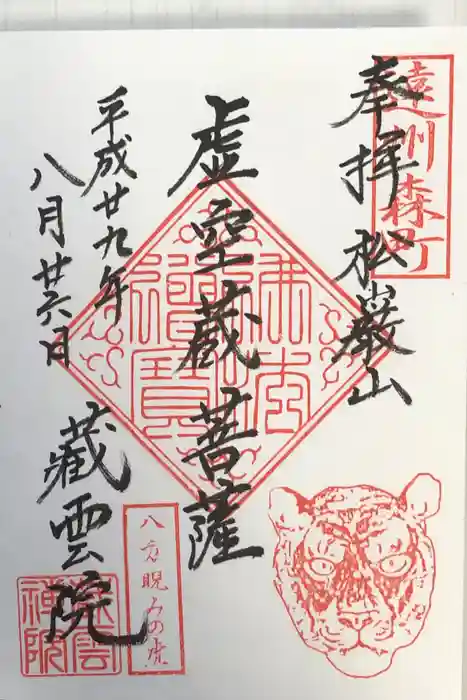 遠州森町
奉拝 松巖山
虚空蔵菩薩
佛法僧寶
平成廿九年
八月廿六日
蔵雲院
八方睨みの虎
蔵雲禅院